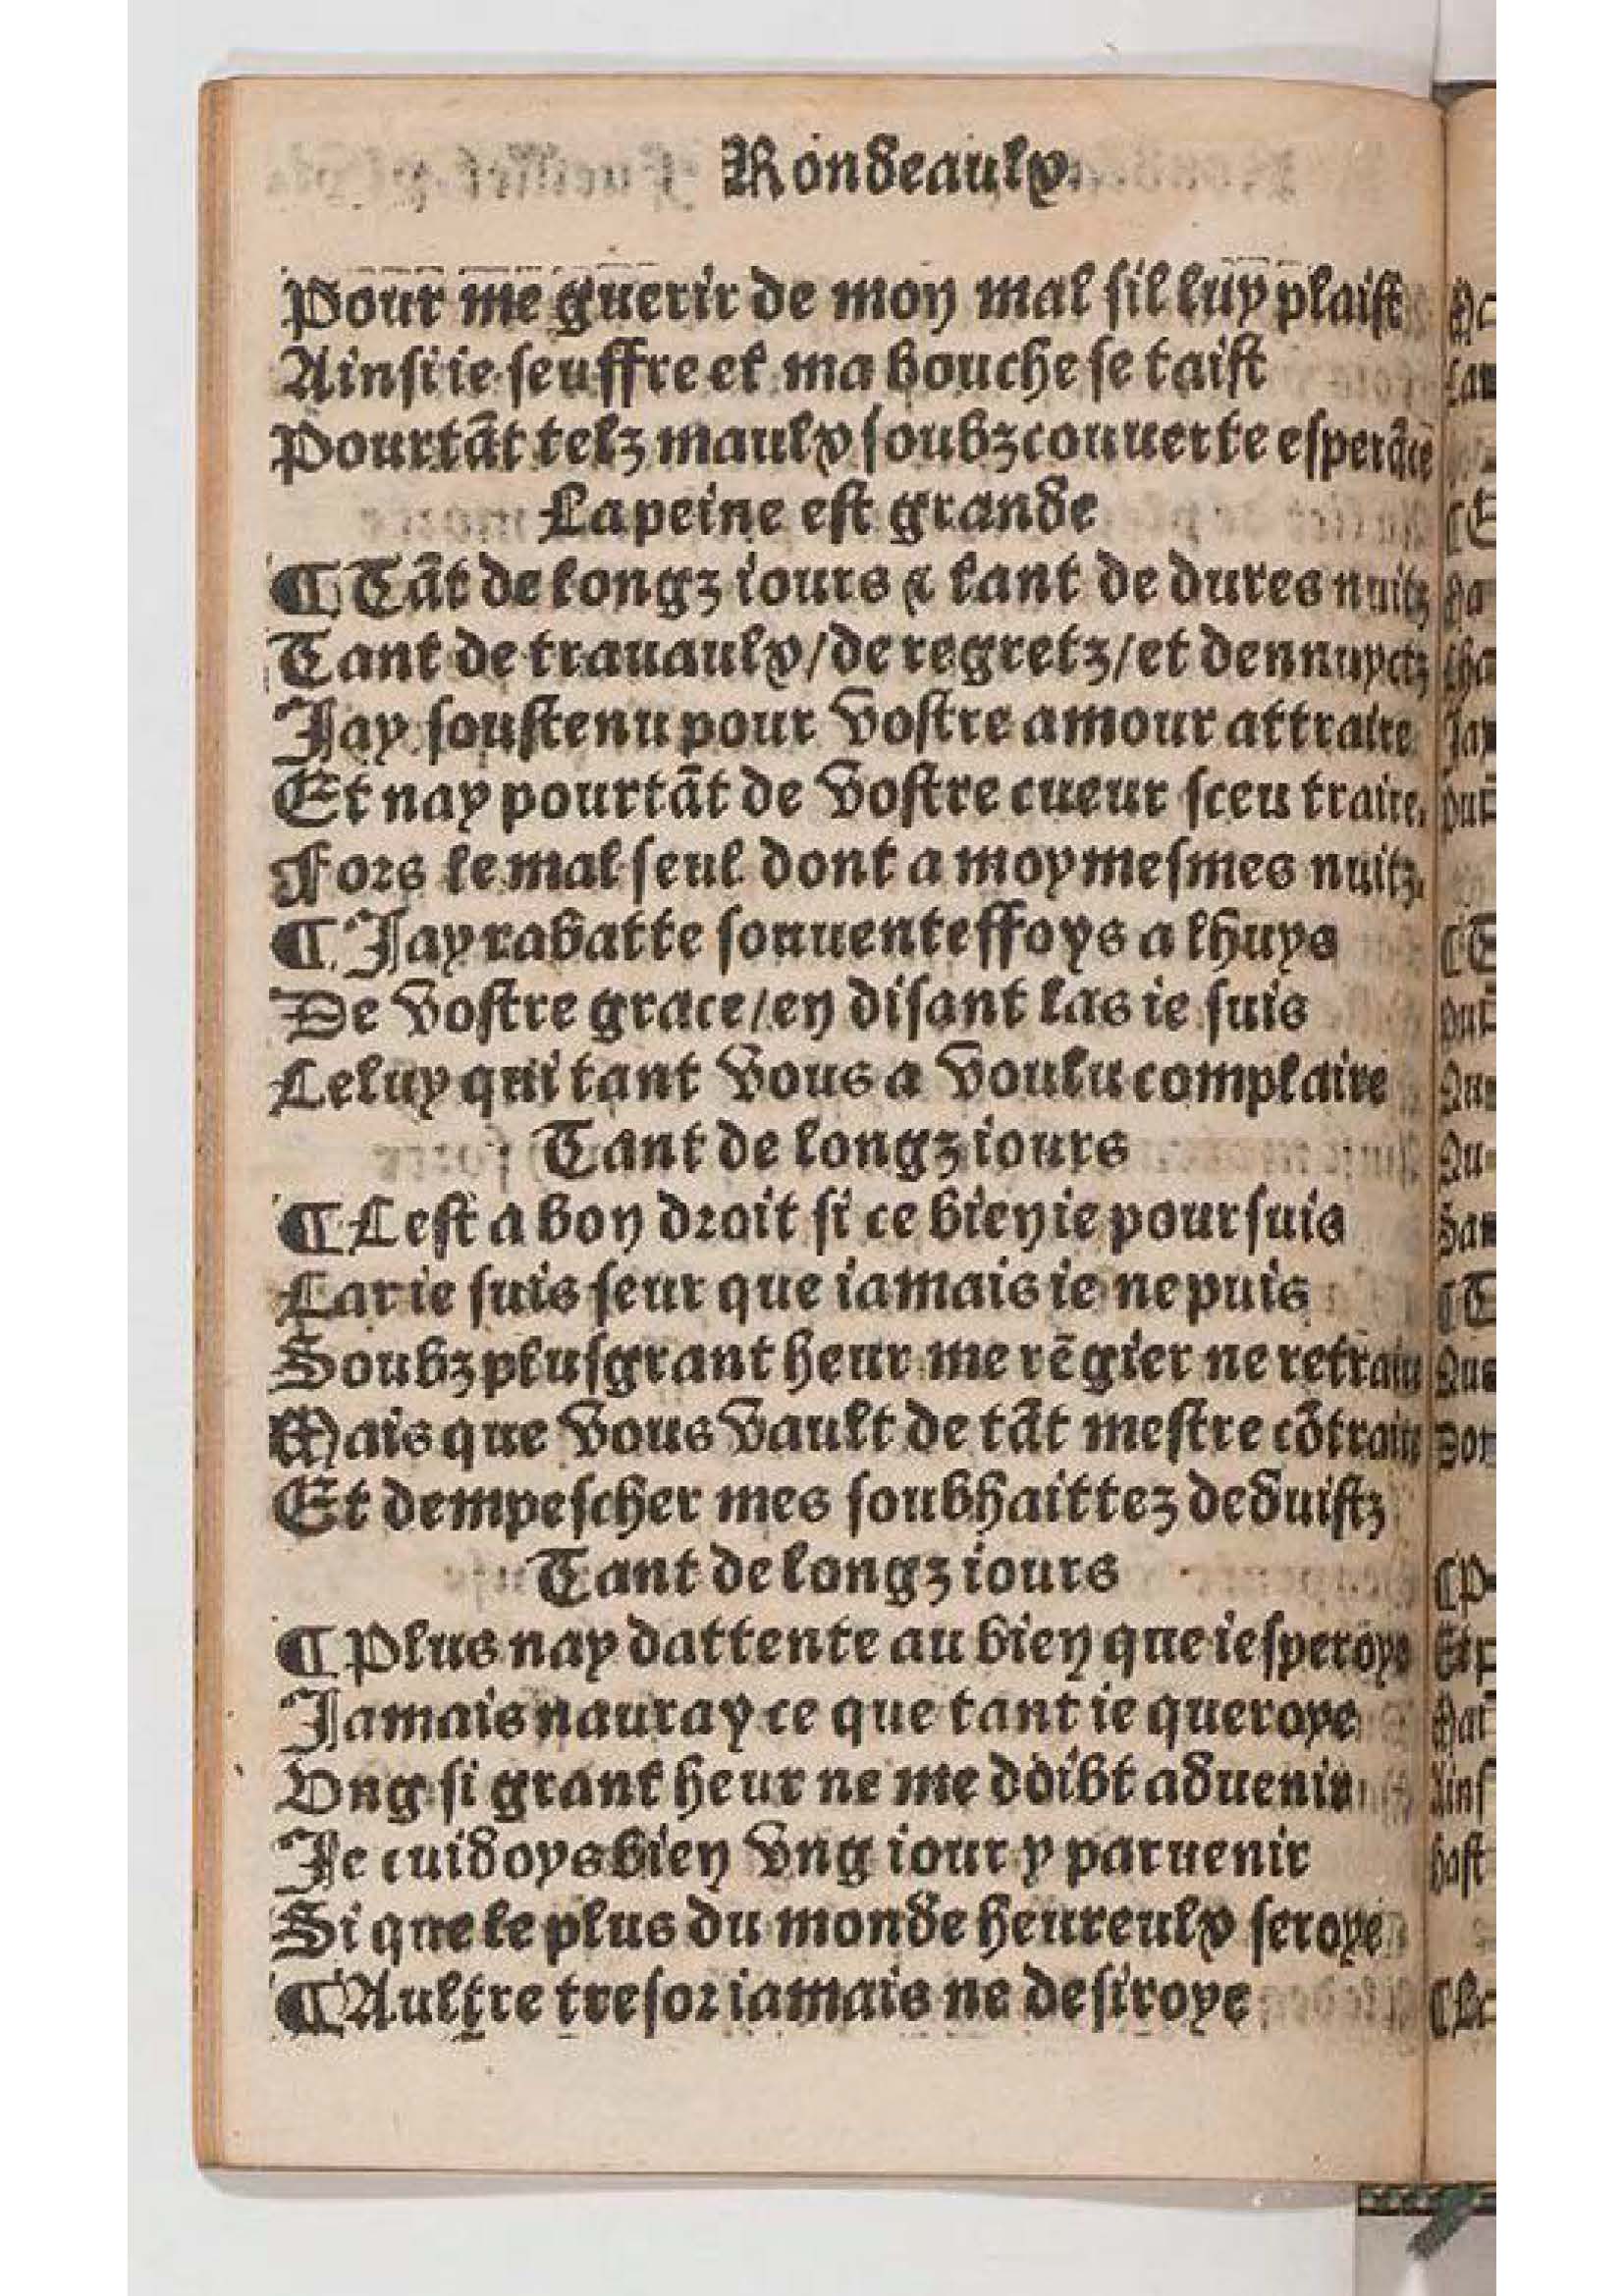 Rondeaulx.
Pour me guerir de mon mal sil luy plaist
Ainsi ie seuffre et ma bouche se taist
Pourtãt telz maulx soubz couuerte esperãce
La peine est grande
¶ Tãt de longz iours & tant de dures nuitz
Tant de trauaulx/de regretz/et dennuyctz
Jay soustenu pour vostre amour attraire
Et nay pourtãt de vostre cueur sceu traire.
Fors le mal seul dont a moymesmes nuitz.
¶ Jay rabatte souuenteffoys a lhuys
De vostre grace/en disant las ie suis
Celuy qui tant vous a voulu complaire
Tant de longz iours
¶ Cest a bon droit si ce bien ie poursuis
Car ie suis seur que iamais ie ne puis
Soubz plusgrant heur me rẽgier ne retraire
Mais que vous vault de tãt mestre cõtraire
Et dempescher mes soubhaittez deduistz
Tant de longz iours
¶ Plus nay dattente au bien que iesperoye
Jamais nauray ce que tant ie queroye
Vng si grant heur ne me doibt aduenir
Je cuidoys bien vng iour y paruenir
Si que le plus du monde heureulx seroye
¶ Aultre tresor iamais ne desiroye